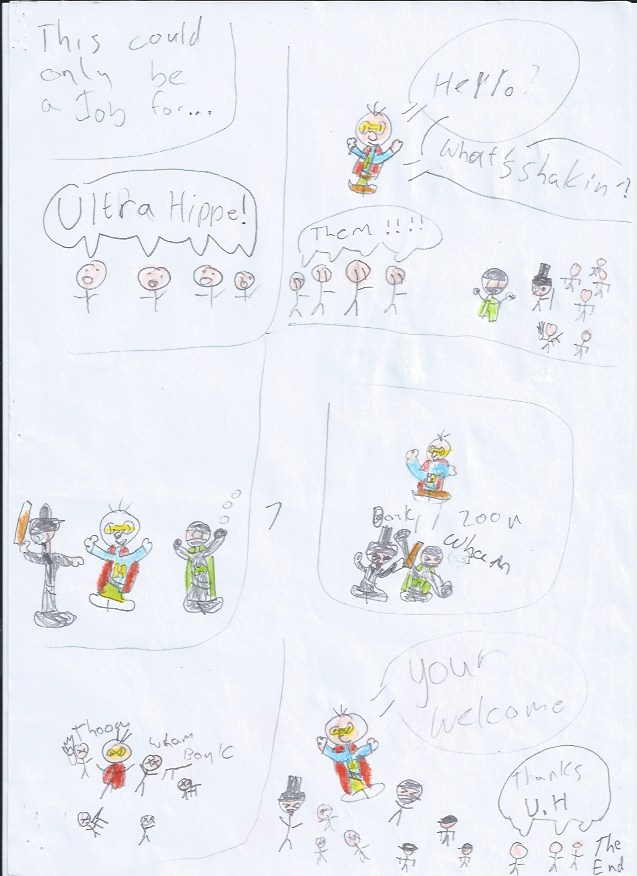 This could
only be
a Job for...
Ultra Hippe!
Hello?
What's Shakin?
Them !!!!
Bonk
Zoom
Wham
Thoom
Wham
Bonk
your
welcome
Thanks
U.H
The
End